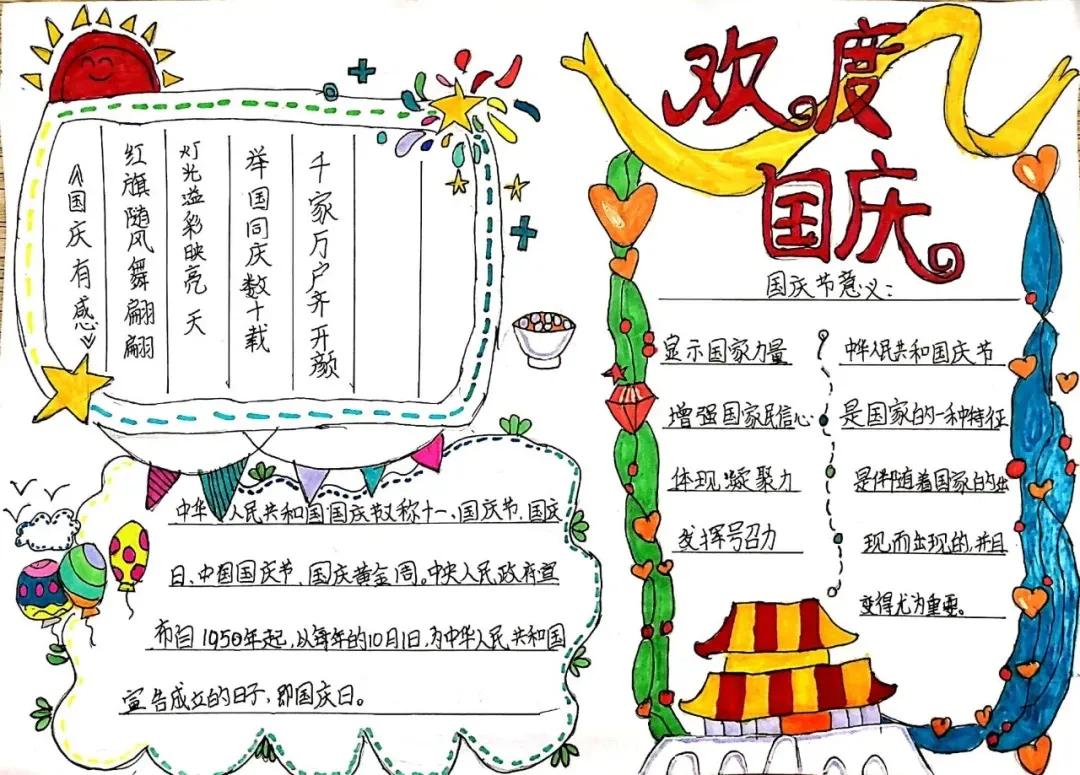 欢度
国庆
《国庆有感》
红旗随风舞翩翩
灯光溢彩映亮天
举国同庆数十载
千家万户齐开颜
中华人民共和国国庆节又称十一、国庆节、国庆
日、中国国庆节、国庆黄金周。中央人民政府宣
布自1950年起,以每年的10月1日,为中华人民共和国
宣告成立的日子,即国庆日。
国庆节意义:
显示国家力量
增强国家民信心
体现凝聚力
发挥号召力
中华人民共和国庆节
是国家的一种特征
是伴随着国家的出
现,而出现的,并且
变得尤为重要。